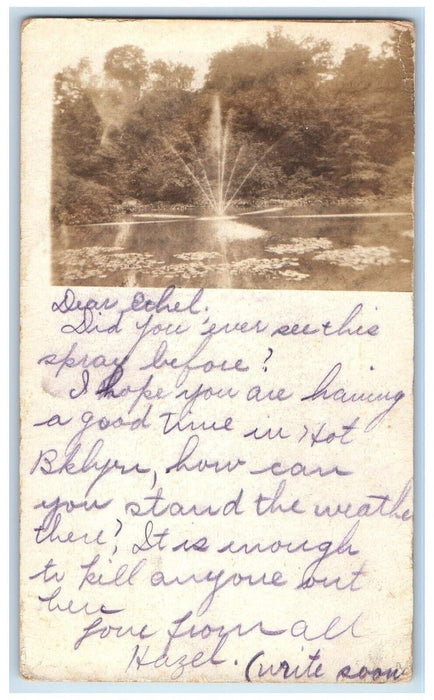 Dear Ethel.
Did you ever see this
spray before?
I hope you are having
a good time in Hot
Bklyn, how can
you stand the weather
there? It is enough
to kill anyone out
here
Love from all
Hazel. (write soon